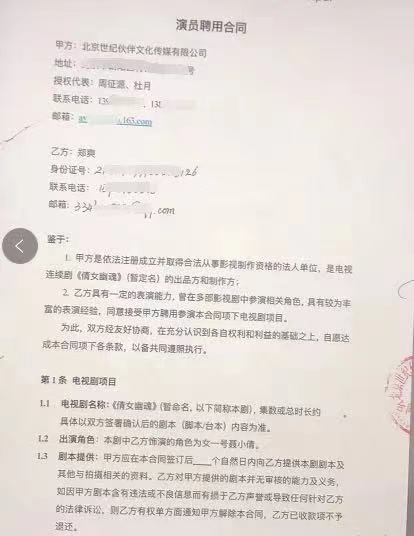 演员聘用合同
甲方：北京世纪伙伴文化传媒有限公司
地址： 号
授权代表：周征源、杜月
联系电话：139 、13
邮箱： 163.com
乙方：郑爽
身份证号：2 126
联系电话：
邮箱：334 .com
鉴于：
1. 甲方是依法注册成立并取得合法从事影视制作资格的法人单位，是电视
连续剧《倩女幽魂》（暂定名）的出品方和制作方；
2. 乙方具有一定的表演能力，曾在多部影视剧中参演相关角色，具有较为丰
富的表演经验，同意接受甲方聘用参演本合同项下电视剧项目。
为此，双方经友好协商，在充分认识到各自权利和利益的基础之上，自愿达
成本合同项下各条款，以备共同遵照执行。
第 1 条 电视剧项目
1.1 电视剧名称：《倩女幽魂》（暂命名，以下简称本剧），集数或总时长约
具体以双方签署确认后的剧本（脚本/台本）内容为准。
1.2 出演角色：本剧中乙方饰演的角色为女一号聂小倩。
1.3 剧本提供：甲方应在本合同签订后____个自然日内向乙方提供本剧剧本及
其他与拍摄相关的资料。乙方对甲方提供的剧本并无审核的能力及义务，
如因甲方剧本含有违法或不良信息而有损于乙方声誉或导致任何针对乙方
的法律诉讼，则乙方有权单方面通知甲方解除本合同，乙方已收款项不予
退还。